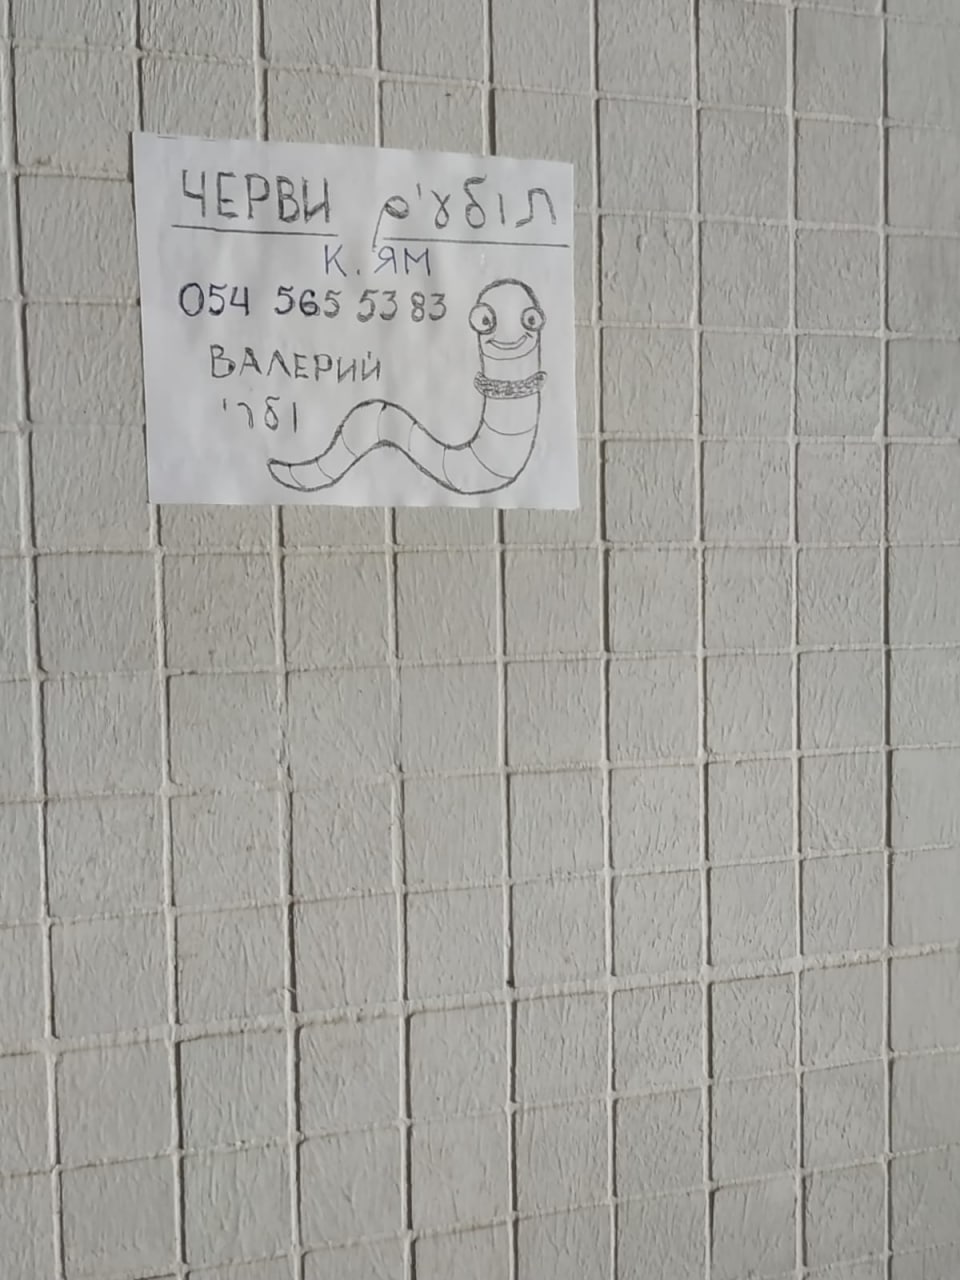 ЧЕРВИ תולעים
К. ЯМ
054 565 53 83
ВАЛЕРИЙ
ולרי